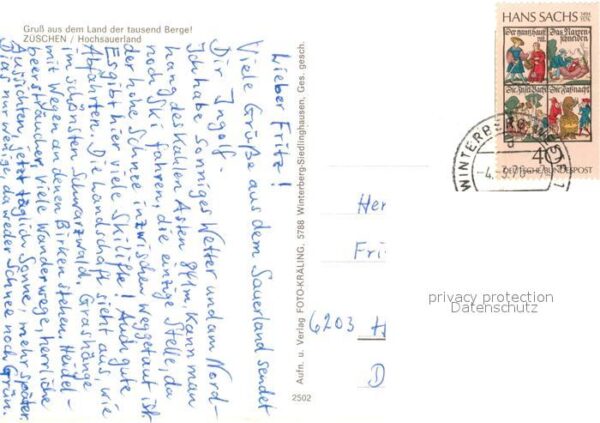 Gruß aus dem Land der tausend Berge!
ZÜSCHEN / Hochsauerland
Lieber Fritz!
Viele Grüße aus dem Sauerland sendet
Dir Ingolf.
Ich habe sonniges Wetter und am Nord-
hang des Kahlen Asten 841m. Kann man
noch Ski fahren, die einzige Stelle, da
der hohe Schnee inzwischen weggetaut ist.
Es gibt hier viele Skilifte! Auch gute
Abfahrten. Die Landschaft sieht aus, wie
im schönsten Schwarzwald. Grashänge
mit Wegen an denen Birken stehen. Heidel-
beersträucher, viele Wanderwege, herrliche
Aussichten, jetzt täglich Sonne, mehr später.
Dias nur wenige, da weder Schnee noch Grün.
Aufn. u. Verlag FOTO-KRÄLING, 5788 Winterberg-Siedlinghausen, Ges. gesch.
2502
HANS SACHS
1494
1576
Der gantz haust Das Narren
schneiden
Die Fasnacht
40
DEUTSCHE BUNDESPOST
WINTERBERG
Her
Fri
6203 H
D
privacy protection
Datenschutz